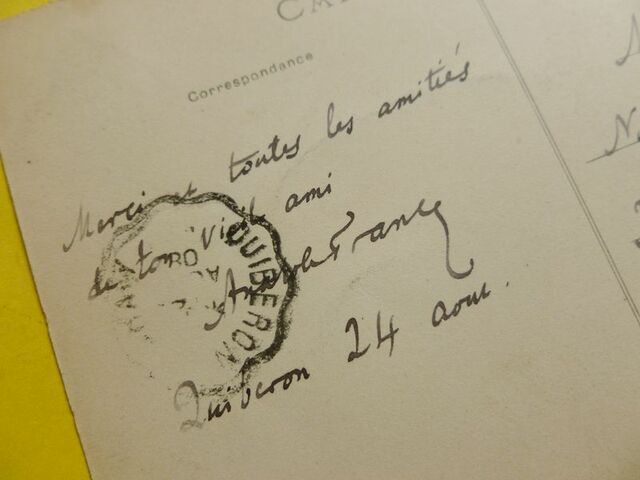 CA
Correspondance
Merci et toutes les amitiés
de ton vieil ami
Anatole France
Quiberon 24 aout.
QUIBERON
N